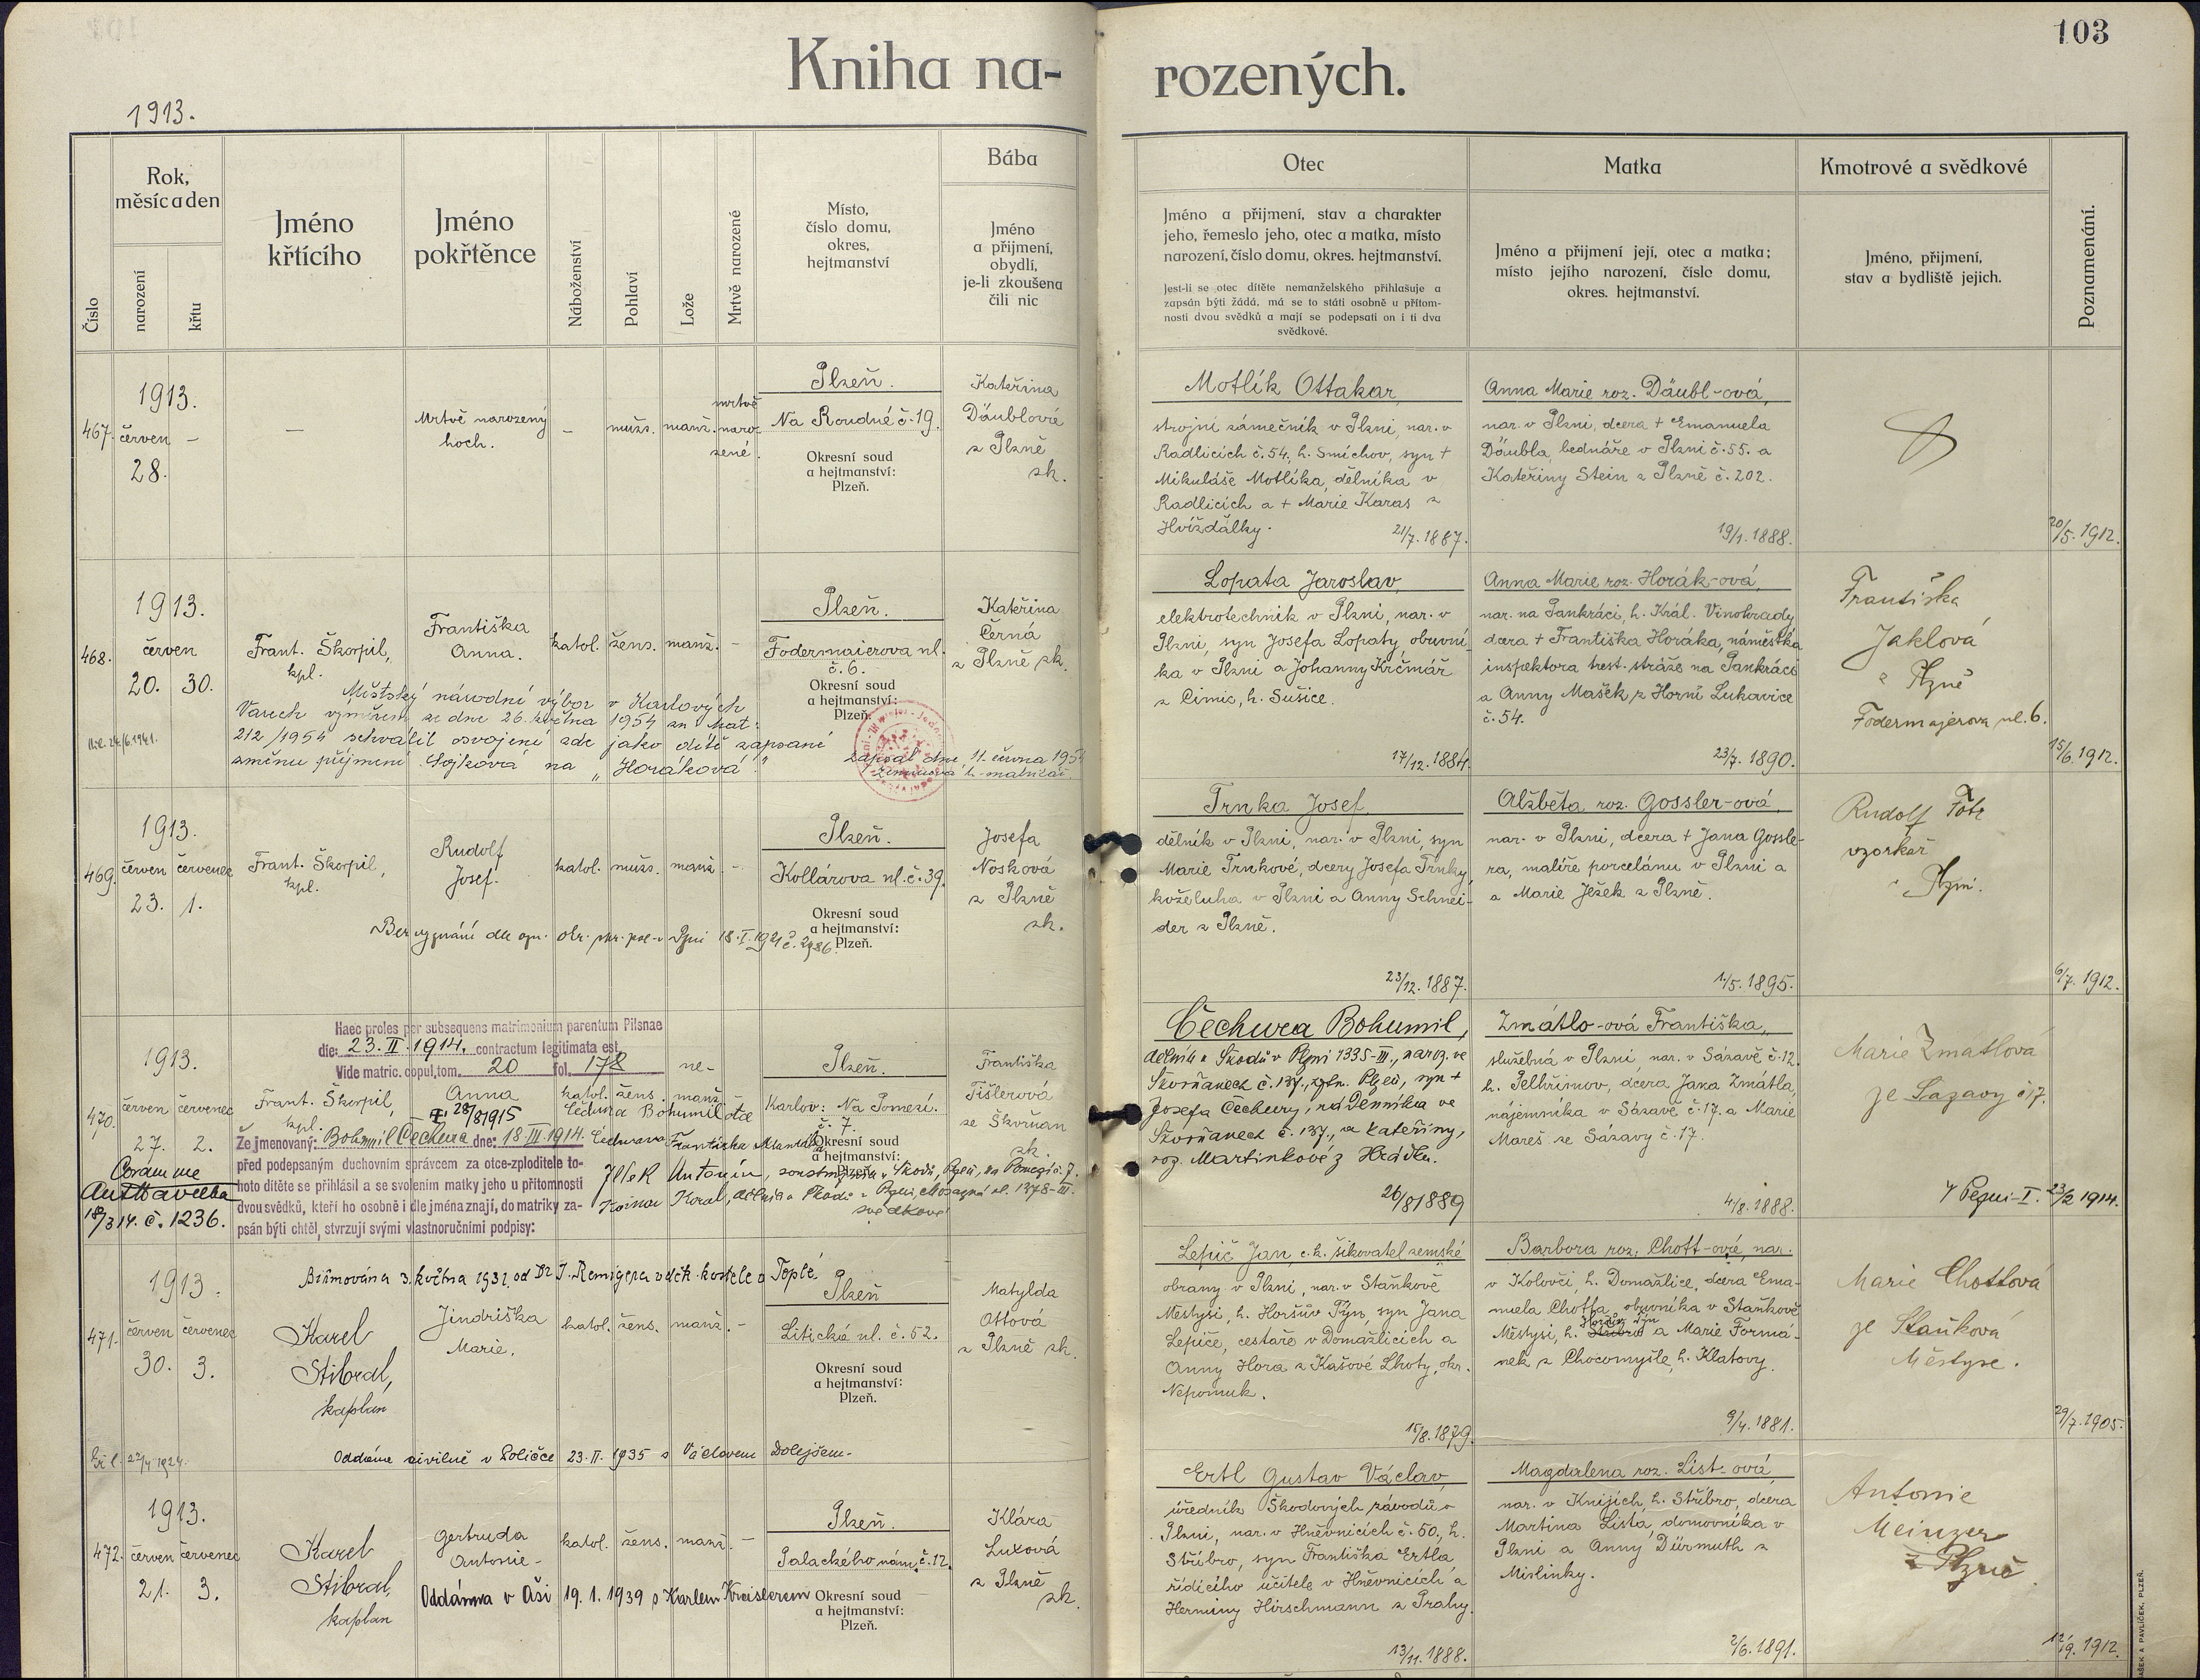 103
Kniha na-rozených.
1913.
Číslo
Rok,
měsíc a den
narození
křtu
Jméno
křtícího
Jméno
pokřtěnce
Náboženství
Pohlaví
Lože
Mrtvě narozené
Místo,
číslo domu,
okres,
hejtmanství
Bába
Jméno
a příjmení,
obydlí,
je-li zkoušena
čili nic
Otec
Jméno a přijmení, stav a charakter
jeho, řemeslo jeho, otec a matka, místo
narození, číslo domu, okres. hejtmanství.
Jest-li se otec dítěte nemanželského přihlašuje a
zapsán býti žádá, má se to státi osobně u přítom-
nosti dvou svědků a mají se podepsati on i ti dva
svědkové.
Matka
Jméno a přijmení její, otec a matka;
místo jejího narození, číslo domu,
okres. hejtmanství.
Kmotrové a svědkové
Jméno, přijmení,
stav a bydliště jejich.
Poznamenání.
467.
1913.
červen –
28.
–
Mrtvě narozený
hoch.
–
mužs.
manž.
mrtvě
naro-
zené.
Plzeň.
Na Roudné č. 19.
Okresní soud
a hejtmanství:
Plzeň.
Kateřina
Däublová
z Plzně
zk.
Motlík Ottakar,
strojní zámečník v Plzni, nar. v
Radlicích č. 54, h. Smíchov, syn +
Mikuláše Motlíka, dělníka v
Radlicích a + Marie Karas z
Hvížďálky.
21/7. 1887.
Anna Marie roz. Däubl-ová,
nar. v Plzni, dcera + Emanuela
Däubla, bednáře v Plzni č. 55. a
Kateřiny Stein z Plzně č. 202.
19/1. 1888.
20/5. 1912.
468.
1913.
červen
20. 30.
Frant. Škorpil,
kpl.
Františka
Anna.
katol.
žens.
manž.
–
Plzeň.
Fodermaierova ul.
č. 6.
Okresní soud
a hejtmanství:
Plzeň.
Kateřina
Černá
z Plzně zk.
Městský národní výbor v Karlových
Varech výměrem ze dne 26. května 1954 zn. Mat.
212/1954 schválil osvojení zde jako dítě zapsané
změnu příjmení Sojková na "Horáková".
zapsal dne 11. června 1954
Lopata Jaroslav,
elektrotechnik v Plzni, nar. v
Plzni, syn Josefa Lopaty, obuvní-
ka v Plzni a Johanny Krčmář
z Cimic, h. Sušice.
17/12. 1884.
Anna Marie roz. Horák-ová,
nar. na Pankráci, h. Král. Vinohrady,
dcera + Františka Horáka, náměstka
inspektora trest. stráže na Pankráci
a Anny Mašek z Horní Lukavice
č. 54.
23/7. 1890.
Františka
Jaklová
z Plzně
Fodermajerova ul. 6.
15/6. 1912.
469.
1913.
červen červenec
23. 1.
Frant. Škorpil,
kpl.
Rudolf
Josef.
katol.
mužs.
manž.
–
Plzeň.
Kollárova ul. č. 39.
Okresní soud
a hejtmanství:
Plzeň.
Josefa
Nosková
z Plzně
zk.
Bez vyznání dle ozn. okr. spr. pol. v Plzni 18. I. 1921 č. 2986.
Trnka Josef,
dělník v Plzni, nar. v Plzni, syn
Marie Trnkové, dcery Josefa Trnky,
koželuha v Plzni a Anny Schnei-
der z Plzně.
23/12. 1887.
Alžběta roz. Gossler-ová,
nar. v Plzni, dcera + Jana Gossle-
ra, malíře porcelánu v Plzni a
a Marie Ježek z Plzně.
1./5. 1895.
Rudolf
vzorkař
Plzni.
6/7. 1912.
Haec proles per subsequens matrimonium parentum Pilsnae
die: 23. II. 1914. contractum legitimata est.
Vide matric. copul. tom. 20 fol. 178
470.
1913.
červen červenec
27. 2.
Frant. Škorpil,
kpl.
Anna
28/8 1915
katol.
žens.
ne-
manž.
–
Plzeň.
Karlov: Na Pomezí.
č. 7.
Okresní soud
a hejtmanství:
Plzeň.
Františka
Tišlerová
ze Škvrňan
zk.
Čechura Bohumil otec
Čechurová Františka matka
Že jmenovaný: Bohumil Čechura dne: 18. III. 1914.
před podepsaným duchovním správcem za otce-zploditele to-
hoto dítěte se přihlásil a se svolením matky jeho u přítomnosti
dvou svědků, kteří ho osobně i dle jména znají, do matriky za-
psán býti chtěl, stvrzují svými vlastnoručními podpisy:
Coram me
18/3 14. č. 1236.
svědkové
Čechura Bohumil,
dělník u Škodů v Plzni 1335-III., naroz. ve
Škvrňanech č. 137., hejtm. Plzeň, syn +
Josefa Čechury, nádenníka ve
Škvrňanech č. 137., a Kateřiny,
roz. Martinkové z Hrádku.
26/8 1889
Zmátlo-ová Františka,
služebná v Plzni, nar. v Sázavě č. 12,
h. Pelhřimov, dcera Jana Zmátla,
nájemníka v Sázavě č. 17. a Marie
Mareš ze Sázavy č. 17.
4/8. 1888.
Marie Zmatlová
ze Sazavy č 17.
v Plzni-I. 23/2 1914.
471.
1913.
červen červenec
30. 3.
Biřmována 3. května 1931 od Dr. J. Remigera v děk. kostele v Teplé.
Karel
Stibral,
kaplan
Jindřiška
Marie.
katol.
žens.
manž.
–
Plzeň
Litická ul. č. 52.
Okresní soud
a hejtmanství:
Plzeň.
Matylda
Ottová
z Plzně zk.
Oddána civilně v Poličce 23. II. 1935 s Václavem Dolejšem.
Lepič Jan, c. k. šikovatel zemské
obrany v Plzni, nar. v Staňkově
Městysi, h. Horšův Týn, syn Jana
Lepiče, cestáře v Domažlicích a
Anny Hora z Kašové Lhoty, okr.
Nepomuk.
15/8. 1879.
Barbora roz. Chott-ová, nar.
v Kolovči, h. Domažlice, dcera Ema-
nuela Chotta, obuvníka v Staňkově
Městysi, h. Horšův Týn a Marie Formá-
nek z Chocomyšle, h. Klatovy.
9/4. 1881.
Marie Chottová
ze Staňkova
Městyse.
29/7. 1905.
472.
1913.
červen červenec
21. 3.
Karel
Stibral,
kaplan
Gertruda
Antonie.
katol.
žens.
manž.
–
Plzeň.
Palackého nám. č. 12.
Okresní soud
a hejtmanství:
Plzeň.
Klára
Luxová
z Plzně
zk.
Oddánva v Aši 19. 1. 1939 s Karlem Kreislerem
Ertl Gustav Václav,
úředník Škodových závodů v
Plzni, nar. v Hněvnicích č. 50., h.
Stříbro, syn Františka Ertla
řídícího učitele v Hněvnicích a
Herminy Hirschmann z Prahy.
13/11. 1888.
Magdalena roz. List-ová,
nar. v Knijích, h. Stříbro, dcera
Martina Lista, domovníka v
Plzni a Anny Dürmuth z
Mirlinky.
2/6. 1891.
Antonie
Meinzer
z Plzně
12/9. 1912.